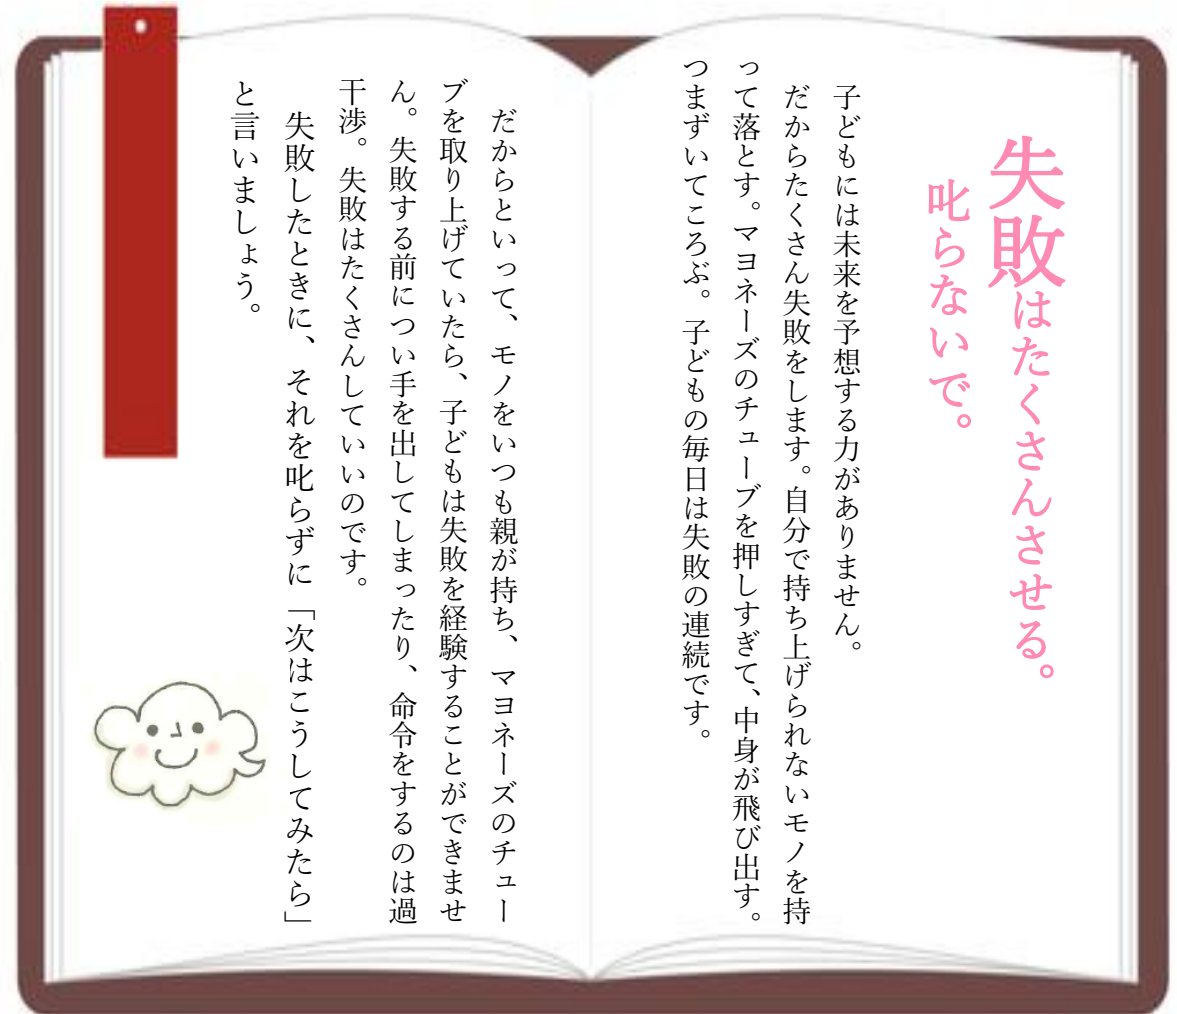 失敗はたくさんさせる。
叱らないで。
子どもには未来を予想する力がありません。
だからたくさん失敗をします。自分で持ち上げられないモノを持
って落とす。マヨネーズのチューブを押しすぎて、中身が飛び出す。
つまずいてころぶ。子どもの毎日は失敗の連続です。
だからといって、モノをいつも親が持ち、マヨネーズのチュー
ブを取り上げていたら、子どもは失敗を経験することができませ
ん。失敗する前につい手を出してしまったり、命令をするのは過
干渉。失敗はたくさんしていいのです。
失敗したときに、それを叱らずに「次はこうしてみたら」
と言いましょう。